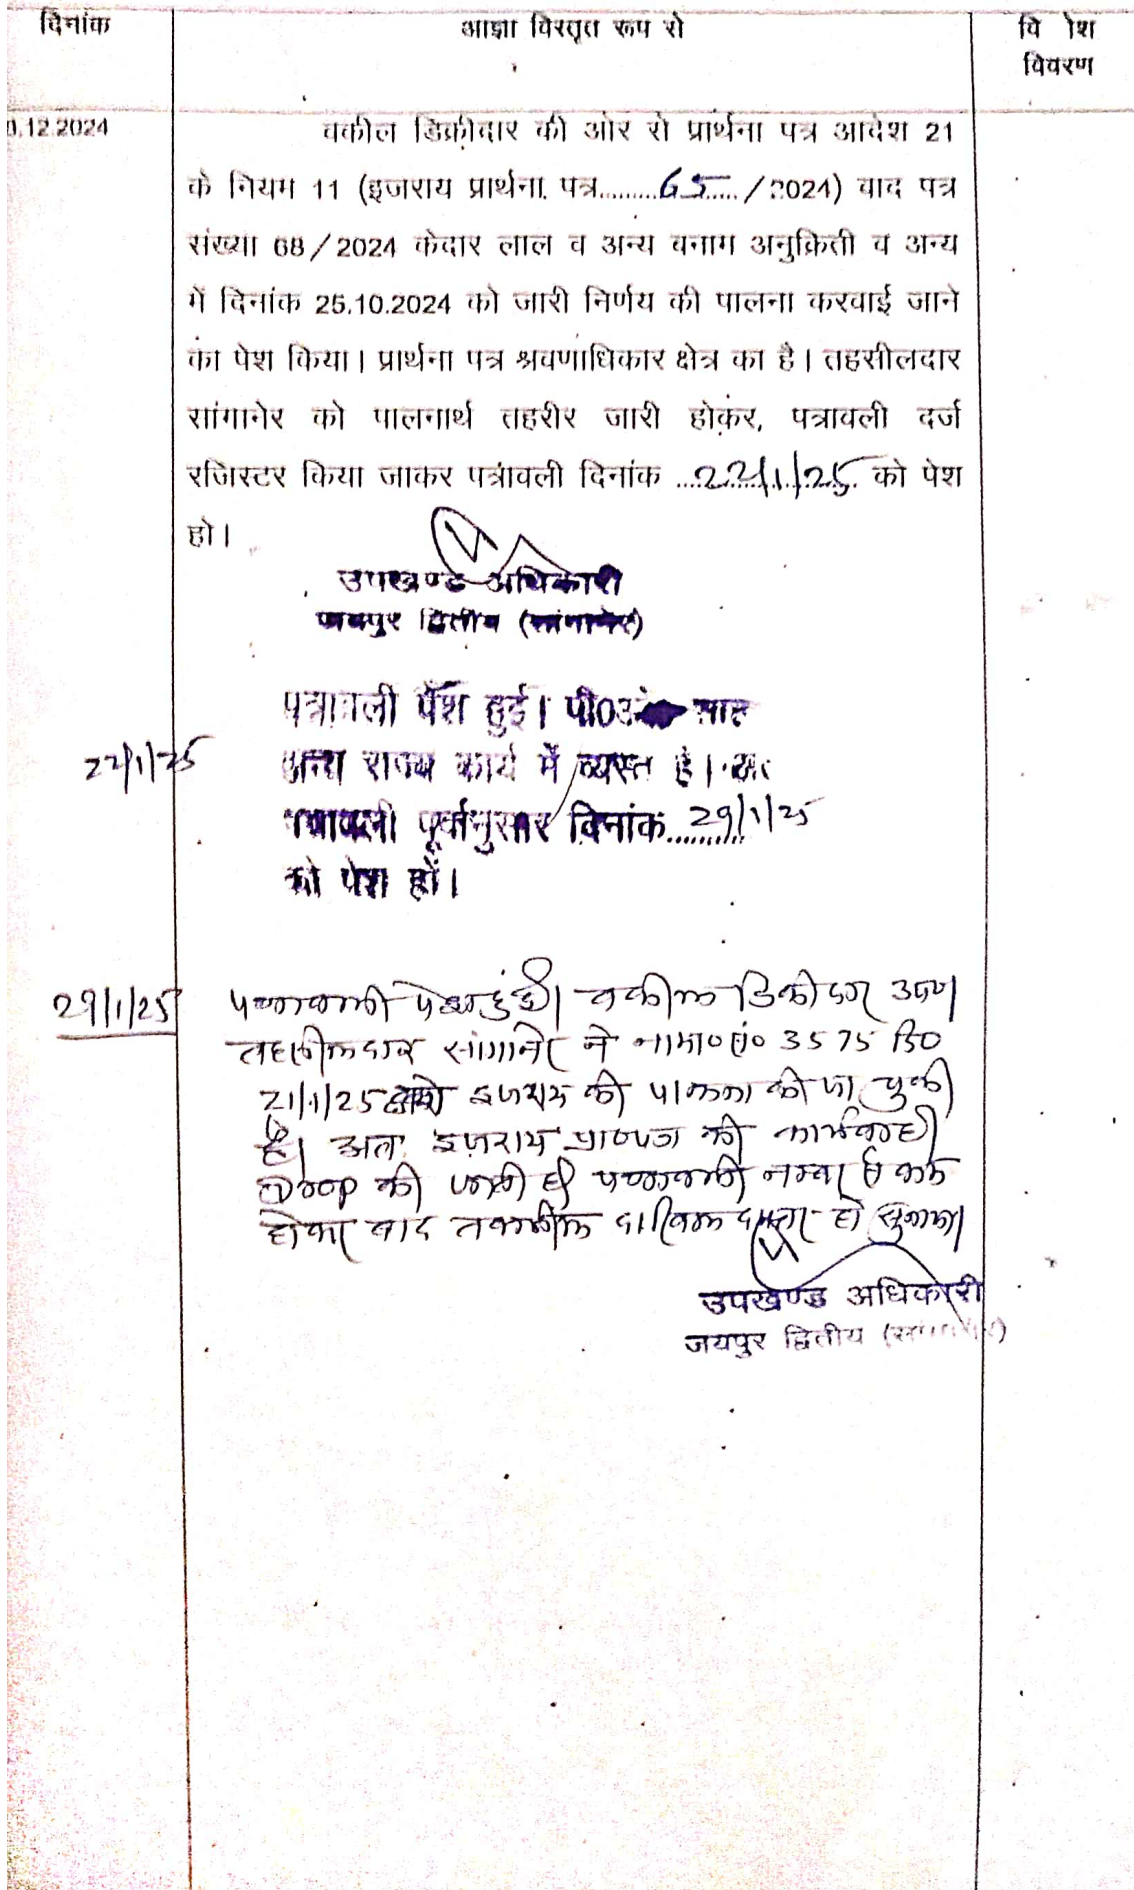 दिनांक
आज्ञा विस्तृत रूप से
वि  ोश
विवरण
0.12.2024
वकील डिक्रीदार की ओर से प्रार्थना पत्र आदेश 21
के नियम 11 (इजराय प्रार्थना पत्र.........65...../2024) वाद पत्र
संख्या 68/2024 केदार लाल व अन्य बनाम अनुक्रिती व अन्य
में दिनांक 25.10.2024 को जारी निर्णय की पालना करवाई जाने
का पेश किया। प्रार्थना पत्र श्रवणाधिकार क्षेत्र का है। तहसीलदार
सांगानेर को पालनार्थ तहरीर जारी होकर, पत्रावली दर्ज
रजिस्टर किया जाकर पत्रावली दिनांक ...22/1/25. को पेश
हो।
उपखण्ड अधिकारी
जयपुर द्वितीय (सांगानेर)
पत्रावली पेश हुई। पी0
22/1/25
अन्य राज्य कार्य में व्यस्त है।
पत्रावली पूर्वानुसार दिनांक..29/1/25
को पेश हों।
29/1/25
पत्रावली पेश हुई। वकील डिक्रीदार उप०
तहसीलदार सांगानेर ने नामा० सं० 3575 दि०
21/1/25 इजराय की पालना की जा चुकी
है। अतः इजराय प्रा०पत्र की कार्यवाही
Drop की जाती है पत्रावली नम्बर से कम
होकर बाद तकमील दाखिल दफ्तर हो
उपखण्ड अधिकारी
जयपुर द्वितीय